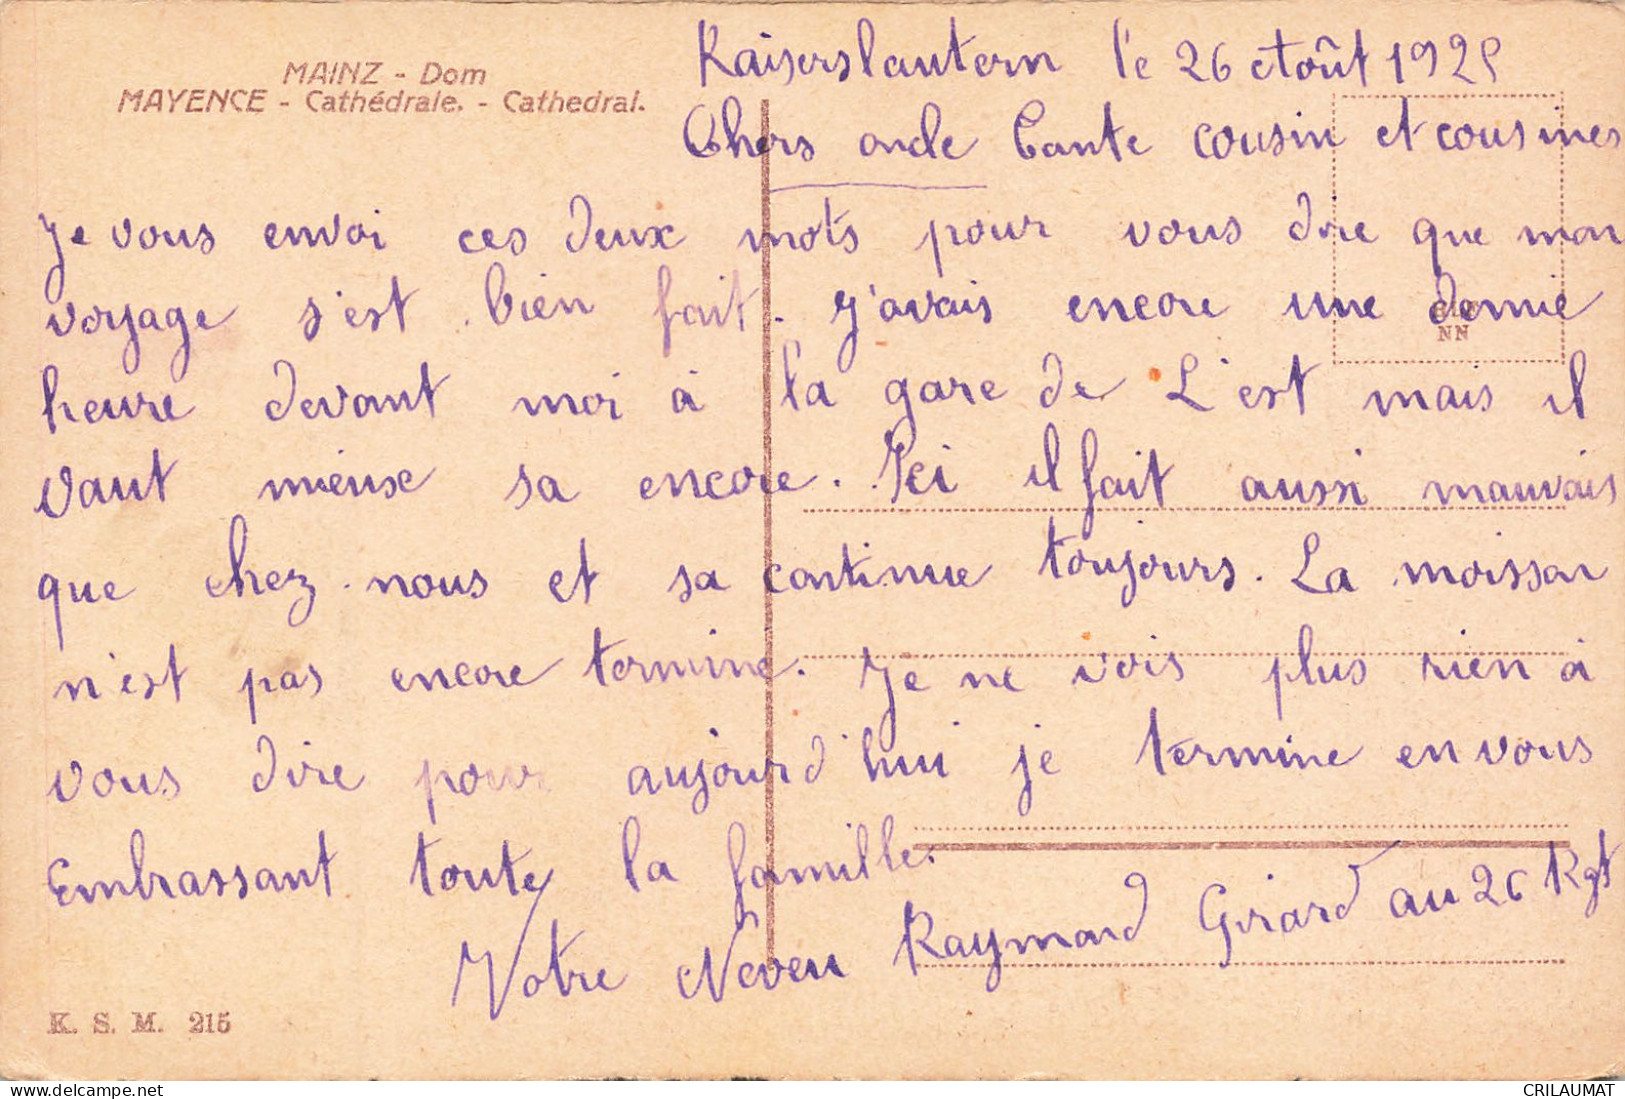 MAINZ - Dom
MAYENCE - Cathédrale. - Cathedral.
Kaiserslautern le 26 Août 1925
Chers oncle Tante cousin et cousines
Je vous envoi ces deux mots pour vous dire que mon
voyage s'est bien fait. j'avais encore une demie
NN
heure devant moi à la gare de L'est mais il
vaut mieux sa encore. Ici il fait aussi mauvais
que chez nous et sa continue toujours. La moisson
n'est pas encore terminé. Je ne vois plus rien à
vous dire pour aujourd'hui je termine en vous
Embrassant toute la famille.
Votre Neveu Raymond Girard au 26 Rgt
K. S. M. 215
delcampe.net
CRILAUMAT